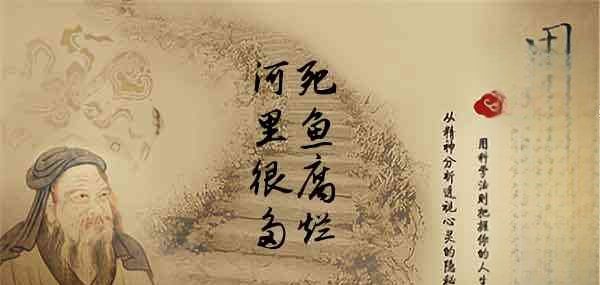 河里很多
死鱼腐烂
从精神分析透视心灵的隐秘
用科学法则把握你的人生